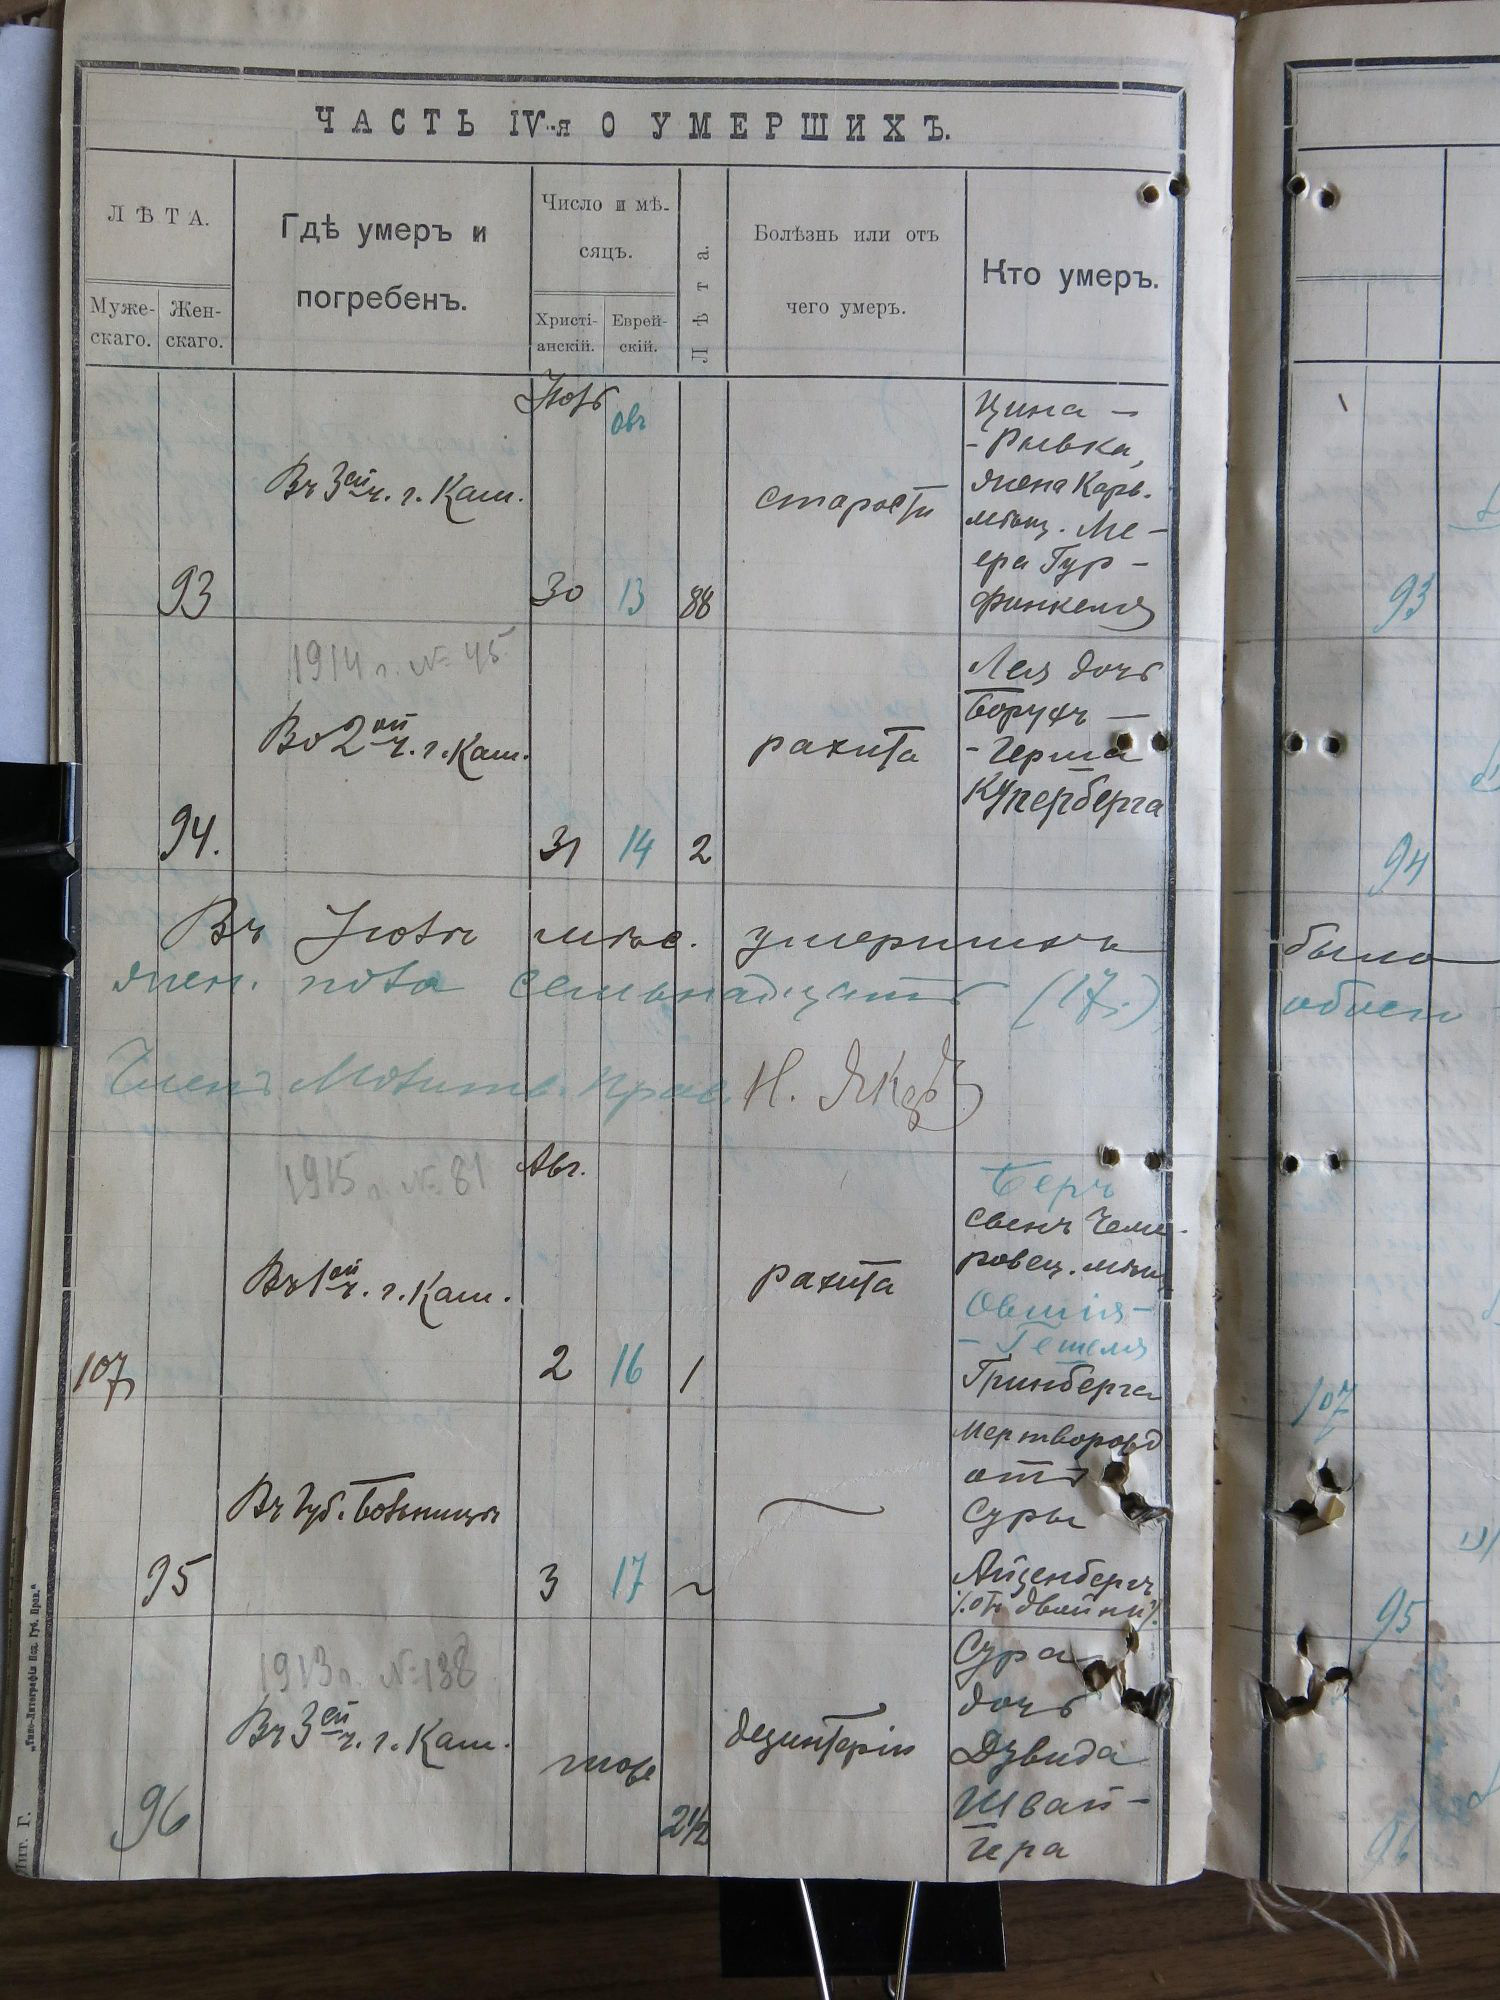 ЧАСТЬ IV-я О УМЕРШИХЪ.
ЛѢТА.
Муже-
скаго.
Жен-
скаго.
Гдѣ умеръ и
погребенъ.
Число и мѣ-
сяцъ.
Христі-
анскій.
Еврей-
скій.
Лѣта.
Болѣзнь или отъ
чего умеръ.
Кто умеръ.
93
Въ 3ей ч. г. Кам.
30
13
88
старости
Цина -
- Рывка,
жена Карв.
мѣщ. Ме-
ера Гур-
финкеля
93
1914 г. № 45
94.
Во 2ой ч. г. Кам.
31
14
2
рахита
Лея дочь
Борухъ -
- Герша
Куперберга
94
Въ мѣс. умершихъ было
жен. пола семьнадцать (17)
Членъ Молитв. Прав.
1915 г. № 81
107
Въ 1ой ч. г. Кам.
Авг.
2
16
1
рахита
Беръ
сынъ Чеме-
ровец. мѣщ.
Овшія-
- Гешеля
Гринберга
107
95
Въ Губ. Больницѣ
3
17
мертворожд
отъ
Суры
Айзенбергъ
отъ двойни
95
1913 г. № 138
96
Въ 3ей ч. г. Кам.
тоже
2½
дезинтеріи
Сура
дочь
Дувида
Швай-
гера
96
Лит. Г.
„Типо-Литографія Под. Губ. Прав."